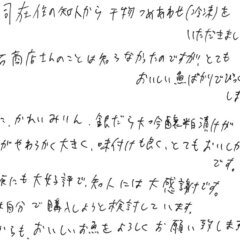 司在住の知人から干物つめあわせ(冷凍)を
いただきまし
石商店さんのことは知らなかったのですが、とても
おいしい魚ばかりでびっく
しま
に、かれい みりん、銀だら大吟醸粕漬けが
がやわらかく大きく、味付けも良く、とてもおいしか
です。
族にも大好評で、知人には大感謝です。
自分で購入しようと検討しています。
からも、おいしいお魚をよろしくお願い致します